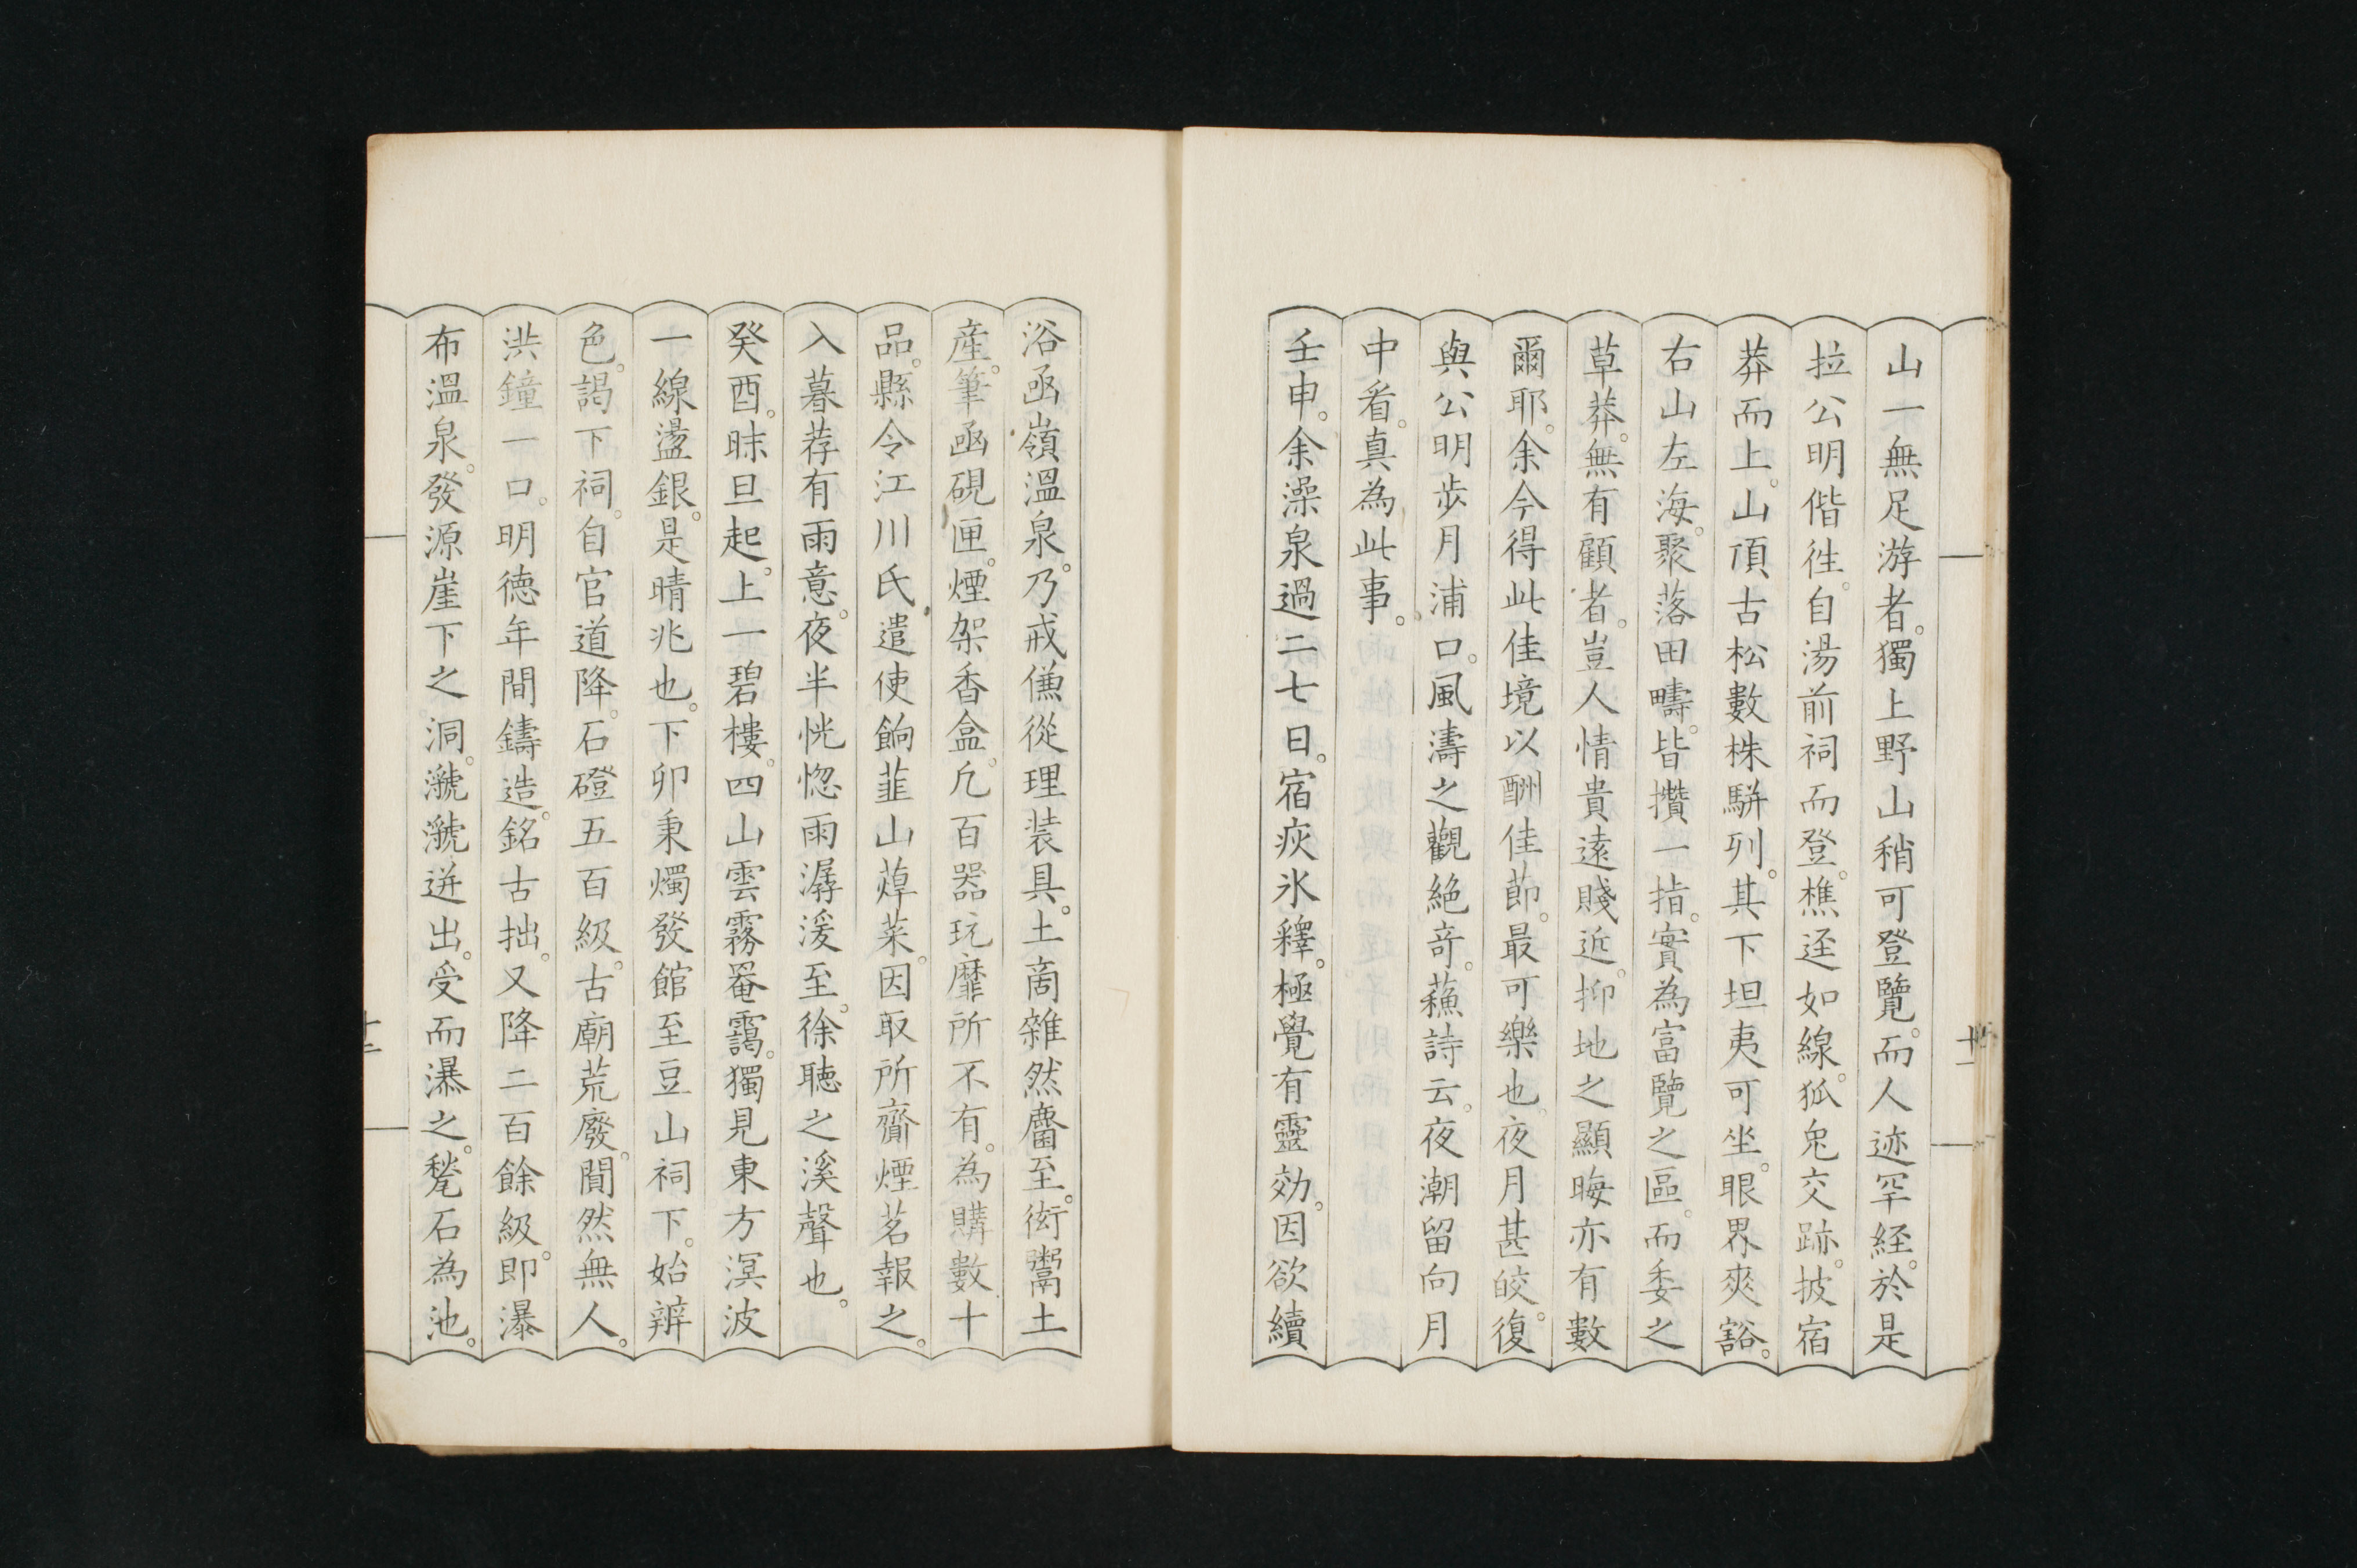 山一無足游者。獨上野山稍可登覽。而人迹罕経。於是
拉公明偕徃。自湯前祠而登。樵逕如線。狐兔交跡。披宿
莽而上。山頂古松數株駢列。其下坦夷可坐。眼界爽豁。
右山左海。聚落田疇。皆攢一指。實為富覽之區。而委之
草莽。無有顧者。豈人情貴遠賤近。抑地之顯晦亦有數
爾耶。余今得此佳境以酬佳節。最可樂也。夜月甚皎。復
與公明步月浦口。風濤之觀絶竒。蘓詩云。夜潮留向月
中看。真為此事。
壬申。余澡泉過二七日。宿疾氷釋。極覺有靈効。因欲續
十一
浴凾嶺溫泉。乃戒傔從理装具。土啇雜然麕至。衒鬻土
産。筆凾硯匣。煙架香盒。凢百器玩靡所不有。為購數十
品。縣令江川氏遣使餉韮山蔊菜。因取所齎煙茗報之。
入暮荐有雨意。夜半恍惚雨潺湲至。徐聴之溪聲也。
癸酉。昧旦起。上一碧樓。四山雲霧罨靄。獨見東方溟波
一線盪銀。是晴兆也。下卯秉燭發館至豆山祠下。始辨
色。謁下祠。自官道降。石磴五百級。古廟荒廢。闃然無人。
洪鐘一口。明徳年間鑄造。銘古拙。又降二百餘級。即瀑
布溫泉。發源崖下之洞。㶁㶁迸出。受而瀑之。甃石為池。
十二